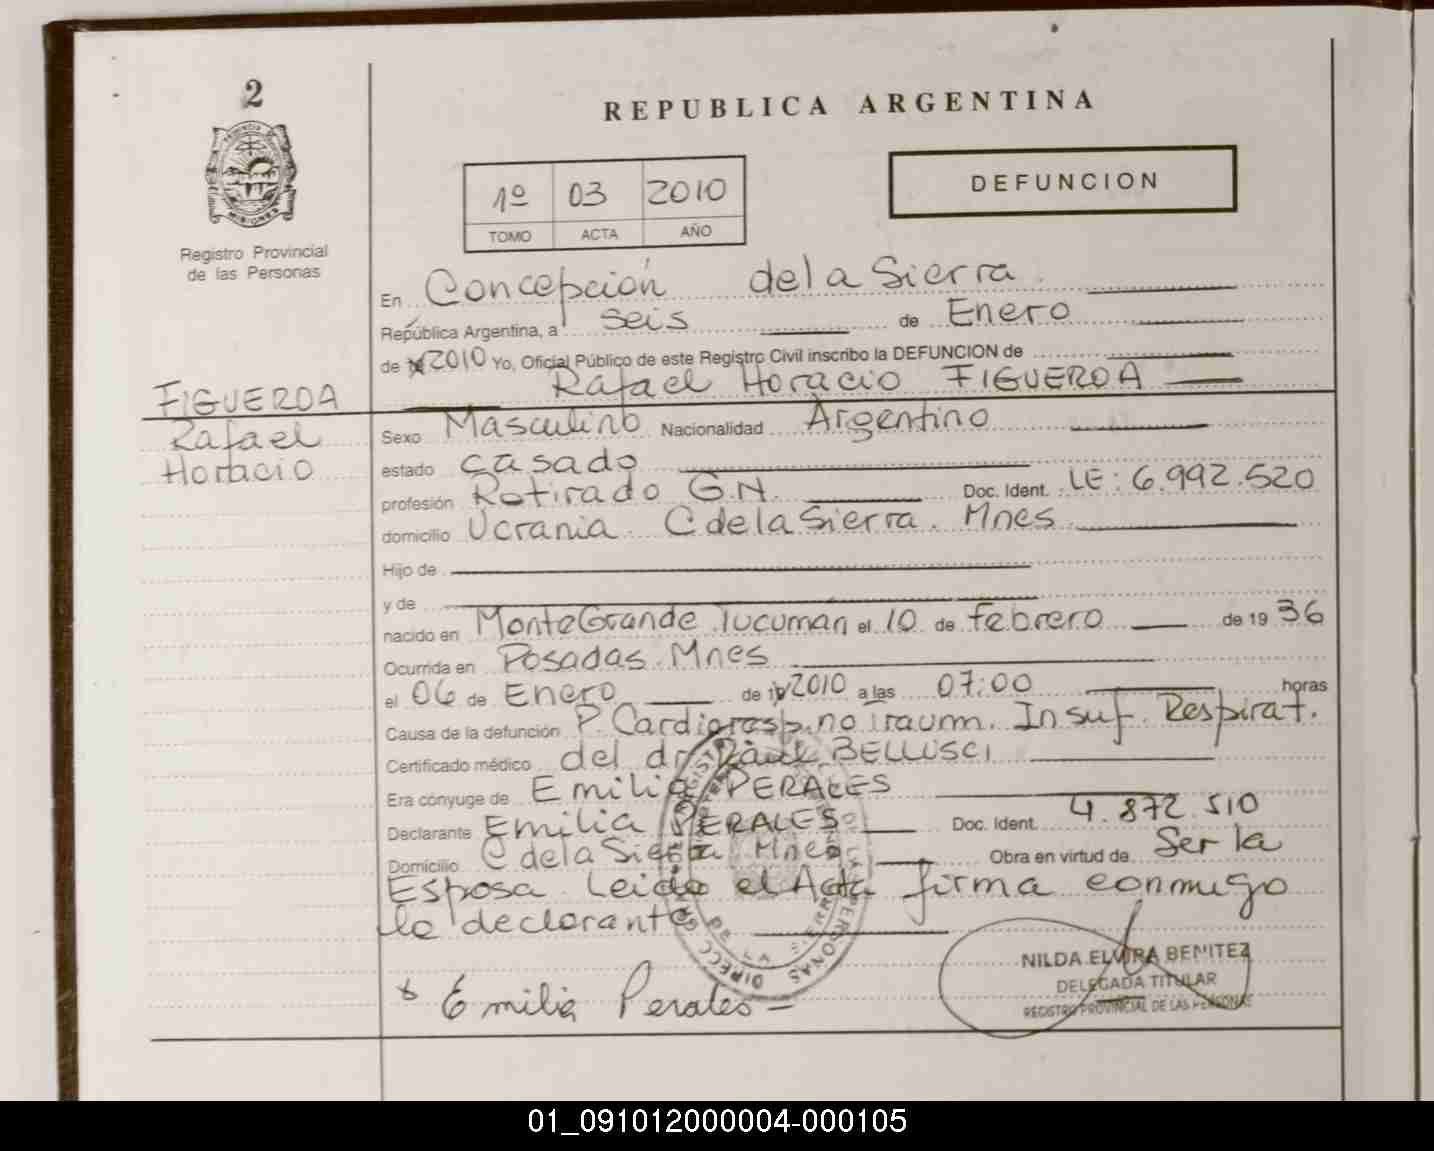 2
REPUBLICA ARGENTINA
1º 03 2010
TOMO ACTA AÑO
DEFUNCION
Registro Provincial
de las Personas
En Concepción de la Sierra
República Argentina, a seis de Enero
de 2010 Yo, Oficial Público de este Registro Civil inscribo la DEFUNCION de
Rafael Horacio FIGUEROA
FIGUEROA
Rafael
Horacio
Sexo Masculino Nacionalidad Argentino
estado casado
profesión Retirado G.N. Doc. Ident. LE: 6.992.520
domicilio Ucrania. C de la Sierra. Mnes
Hijo de
y de
nacido en Monte Grande Tucuman el 10 de febrero de 1936
Ocurrida en Posadas. Mnes
el 06 de Enero de 2010 a las 07:00 horas
Causa de la defunción P. Cardioresp. no traum. Insuf. Respirat.
Certificado médico del dr Raúl BELLUSCI
Era cónyuge de Emilia PERALES
Declarante Emilia PERALES Doc. Ident. 4.872.510
Domicilio C de la Sierra Mnes Obra en virtud de Ser la
Esposa Leida el Acta firma conmigo
la declarante
Emilia Perales
NILDA ELVIRA BENITEZ
DELEGADA TITULAR
REGISTRO PROVINCIAL DE LAS PERSONAS
01_091012000004-000105